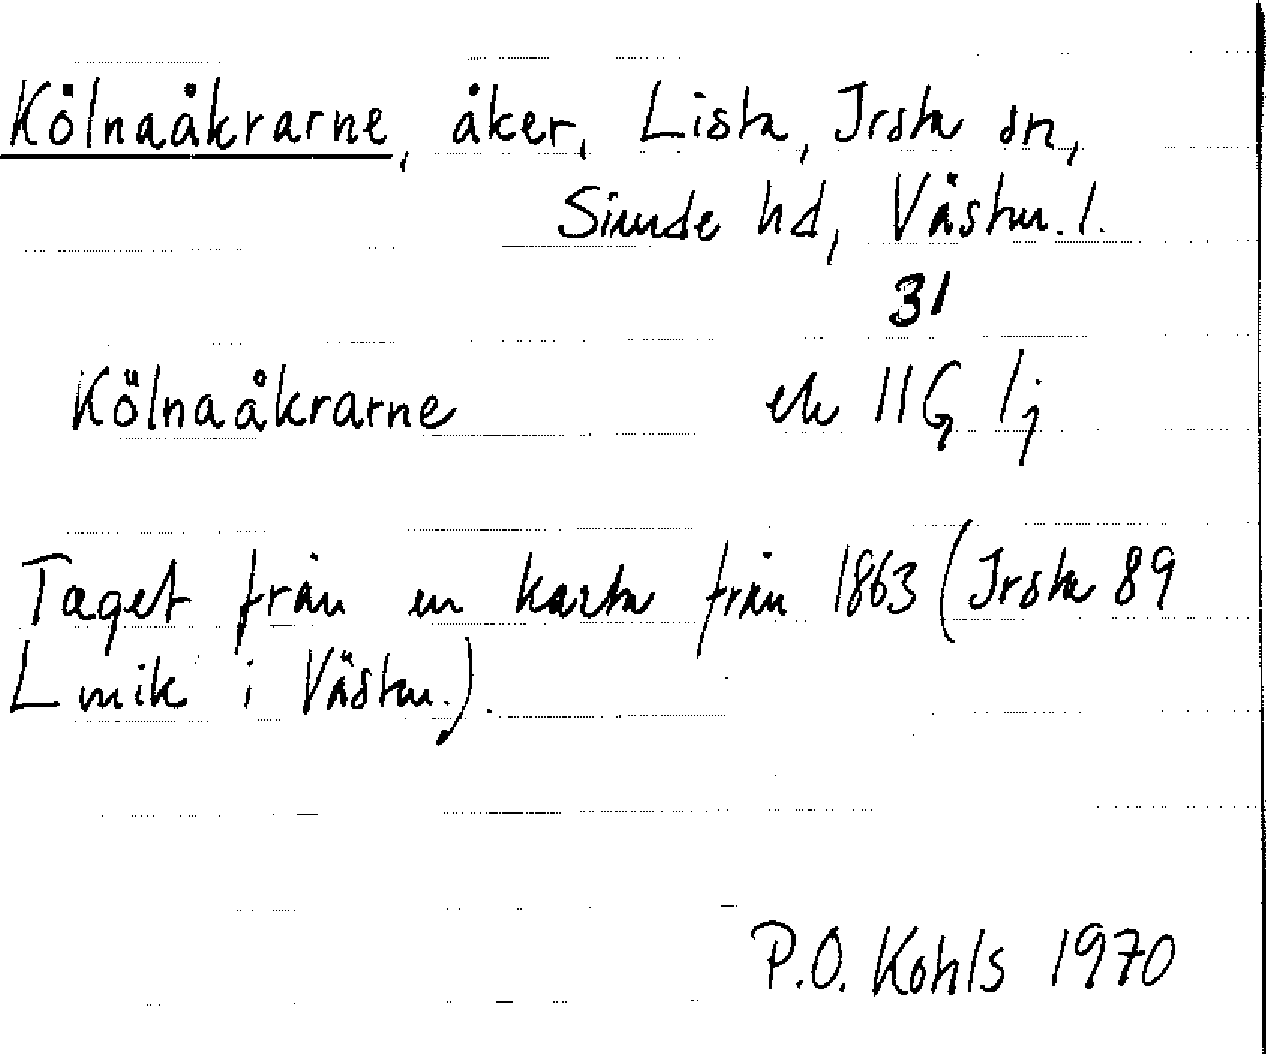 Kölnaåkrarne, åker, Lista, Irsta sn,
Siende hd, Västm. l.
31
Kölnaåkrarne ek 11G 1j
Taget från en karta från 1863 (Irsta 89
Lmik i Västm.).
P.O. Kohls 1970